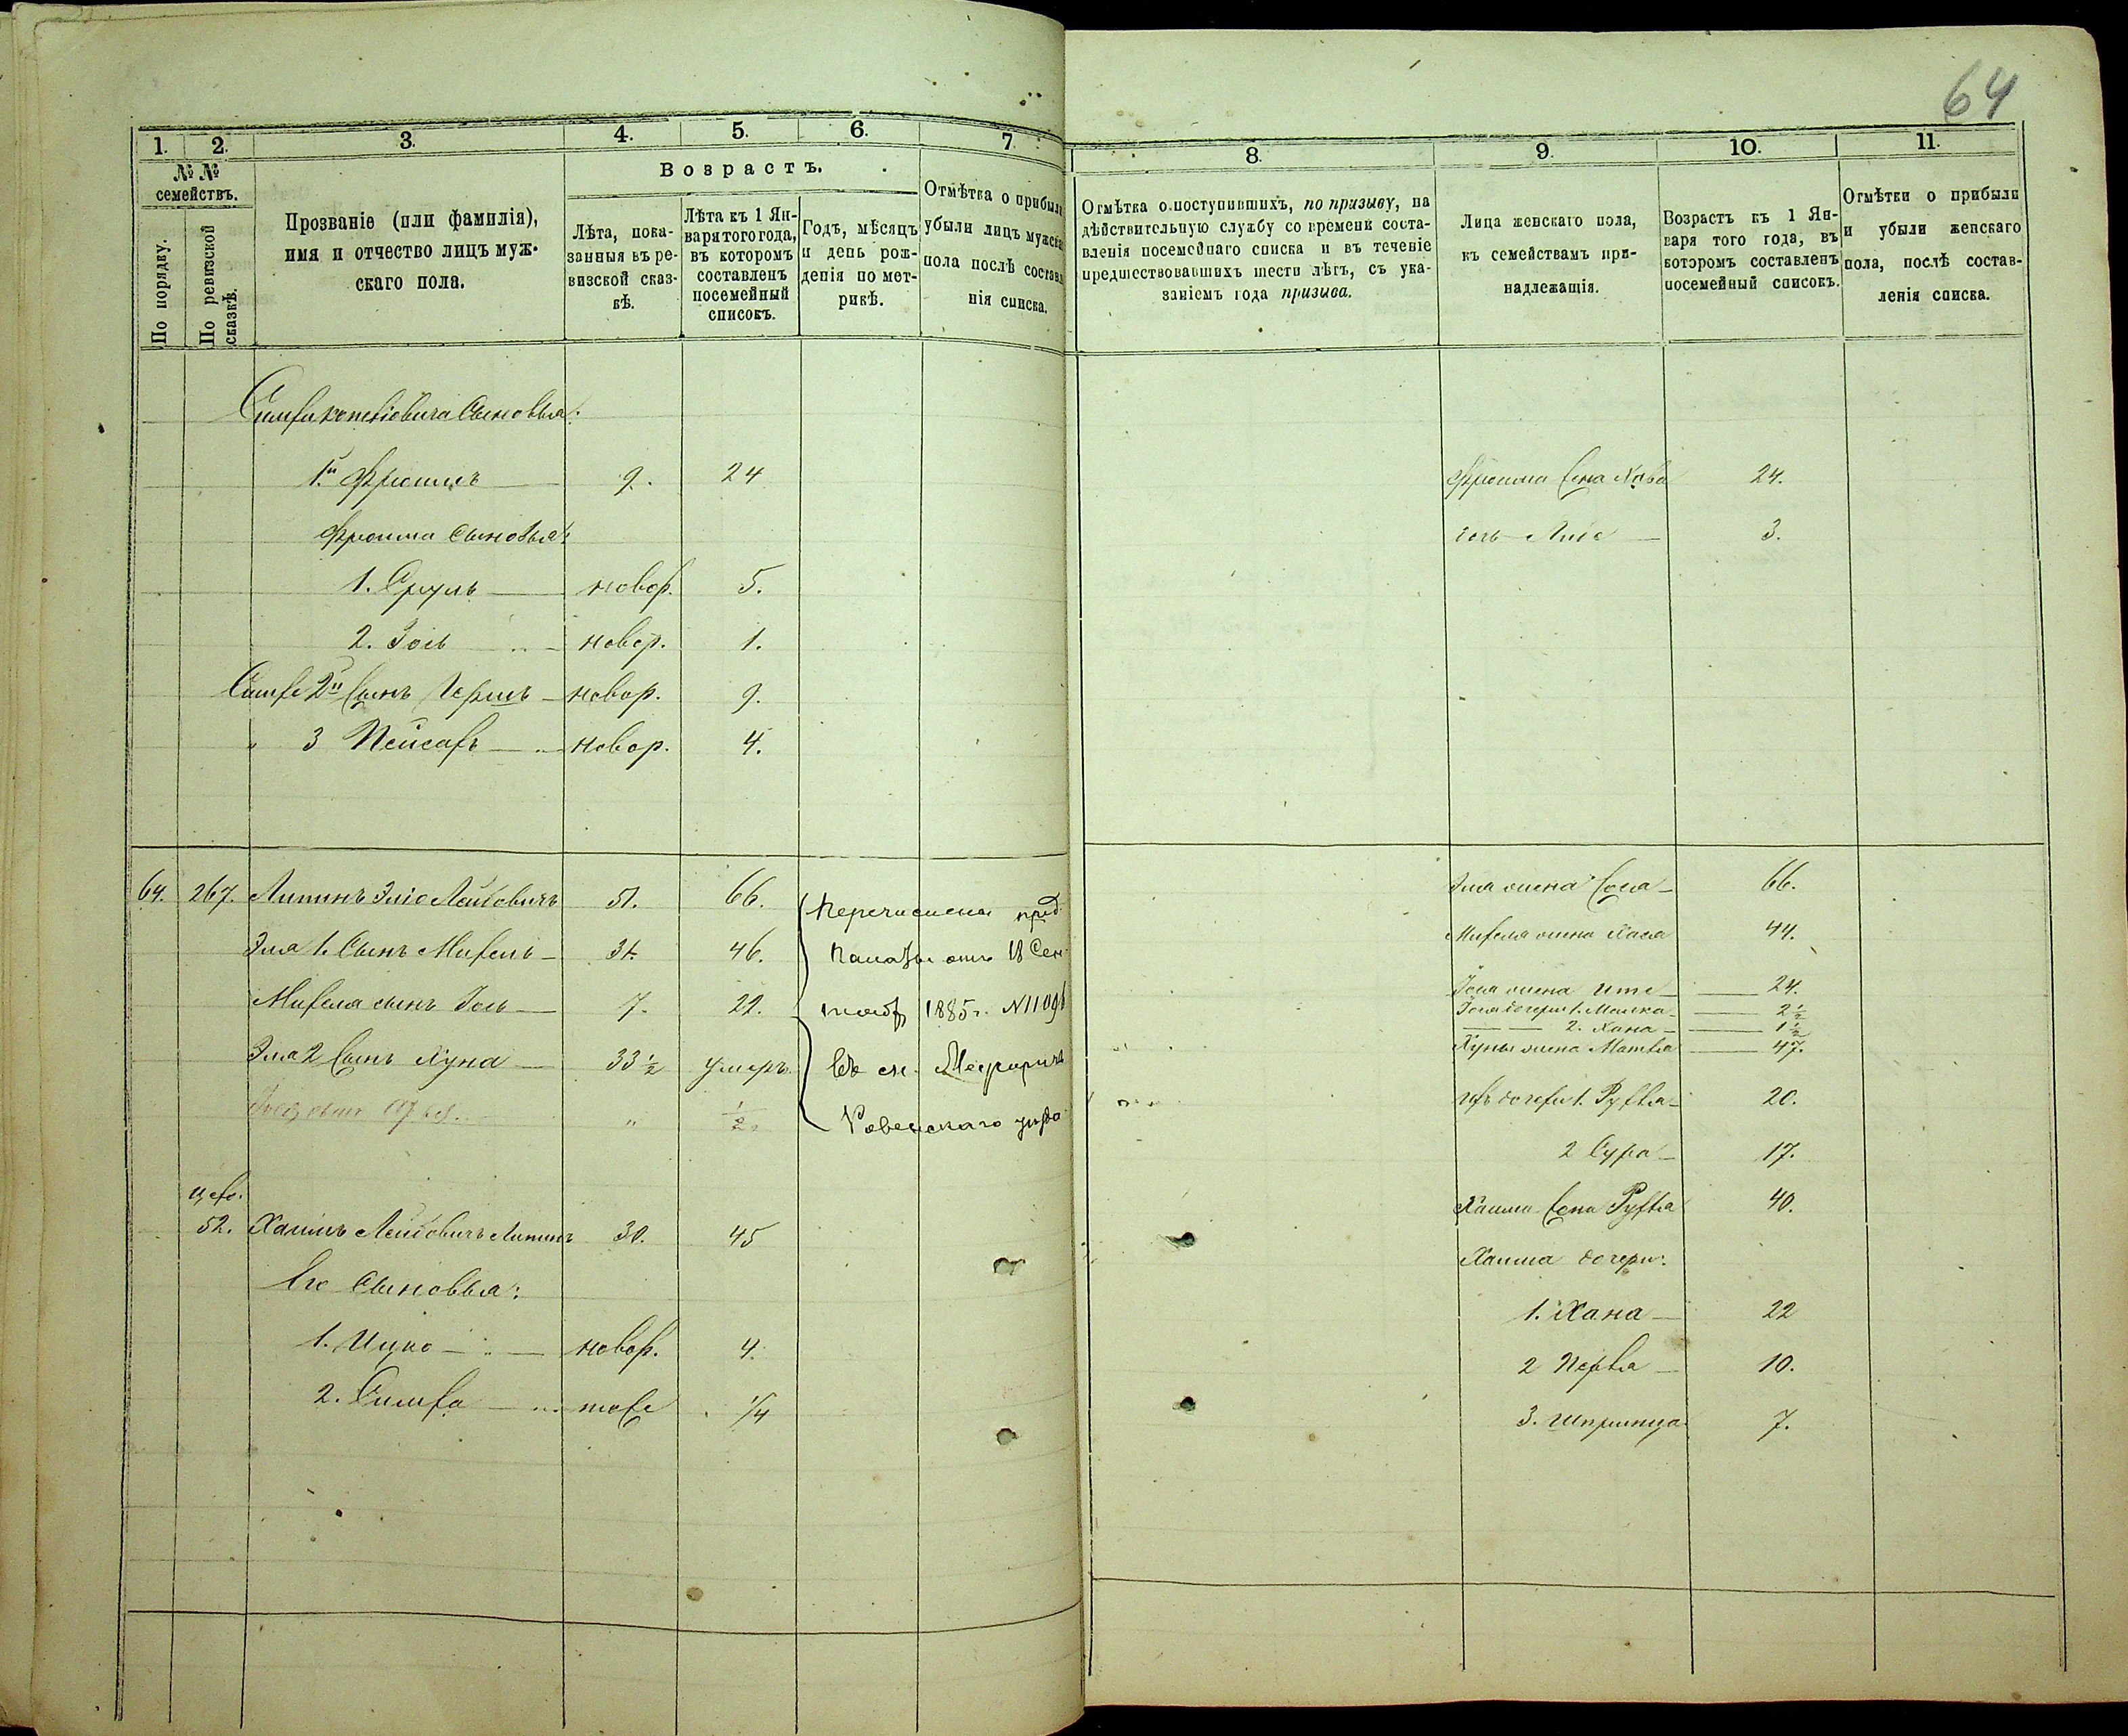 64
1. 2. 3. 4. 5. 6. 7.
№ № семействъ.
По порядку.
По ревизской сказкѣ.
Прозваніе (или фамилія),
имя и отчество лицъ муж-
скаго пола.
Возрастъ.
Лѣта, пока-
занныя въ ре-
визской сказ-
кѣ.
Лѣта къ 1 Ян-
варя того года,
въ которомъ
составленъ
посемейный
списокъ.
Годъ, мѣсяцъ
и день рож-
денія по мет-
рикѣ.
Отмѣтка о прибыли
убыли лицъ
пола послѣ
нія списка.
8. 9. 10. 11.
Отмѣтка о поступившихъ, по призыву, на
дѣйствительную службу со времени соста-
вленія посемейнаго списка и въ теченіе
предшествовавшихъ шести лѣтъ, съ ука-
заніемъ года призыва.
Лица женскаго пола,
къ семействамъ при-
надлежащія.
Возрастъ къ 1 Ян-
варя того года, въ
которомъ составленъ
посемейный списокъ.
Отмѣтки о прибыли
и убыли женскаго
пола, послѣ состав-
ленія списка.
Сыновья:
1й Фроимъ 9. 24 Фроима жена Хава 24.
Фроима сыновья: дочь 3.
1. Сруль новор. 5.
2. Іось новор. 1.
2й сынъ Гершъ новор. 9.
" 3 Пейсахъ новор. 4.
64. 267. Липинъ Эліо Лейбовичъ 51. 66. Перечислены пред. Эля жена Сося 66.
Эля 1. сынъ Михель 31. 46. Палаты отъ 18 Сен. Михеля жена Хася 44.
Михеля сынъ Іось 7. 22. 1885 г. № 11091 Іося жена Ите 24.
Іося дочери 1. Малка 2½
2. Хана 1½
Эля 2 сынъ Хуна 33½ умеръ. въ м. Межиричъ Хуны жена Матля 47.
" ½. Ровенскаго уѣзда ихъ дочери 1. Рухля 20.
2 Сура 17.
52. Хаимъ Лейбовичъ Липинъ 30. 45 Хаима жена Рухля 40.
Его сыновья: Хаима дочери:
1. Ицко новор. 4. 1. Хана 22
2. Симха тоже ¼ 2 Перля 10.
3. Шпринца 7.